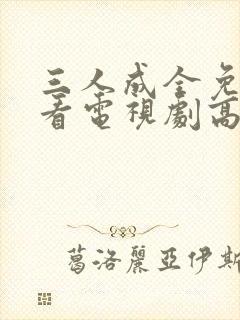 三人成全免
看電視劇高
葛洛麗亞伊斯